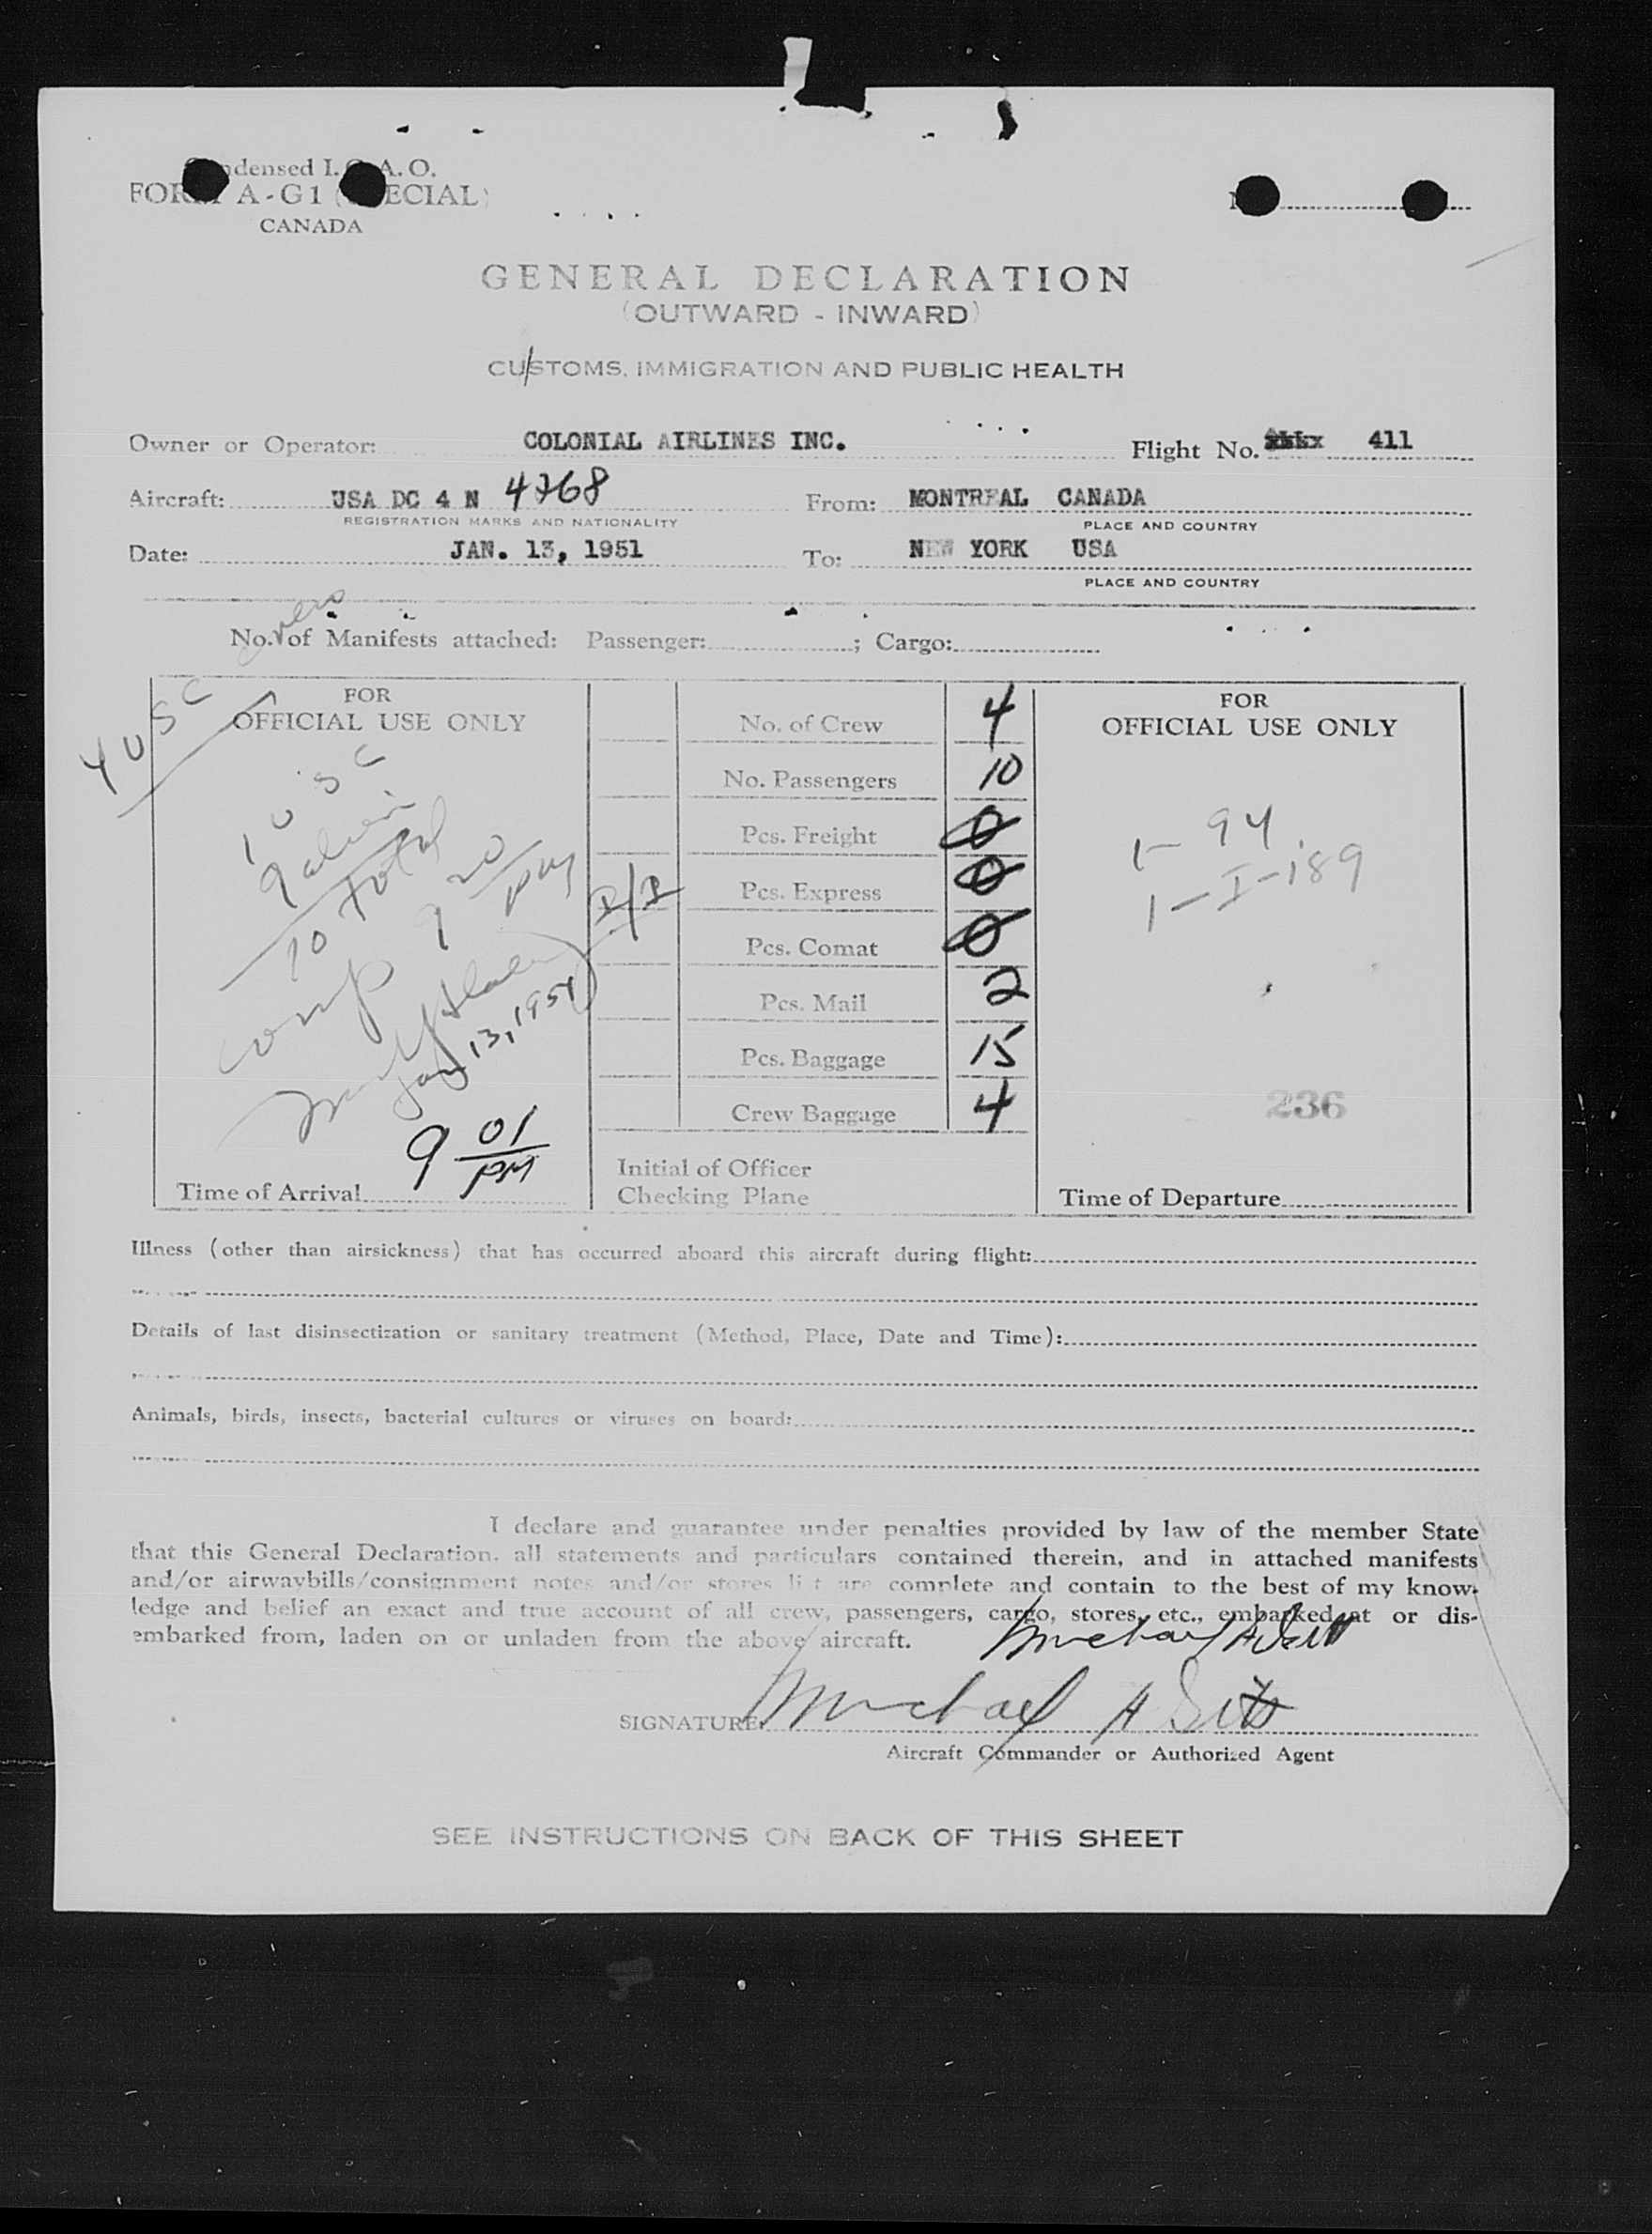 Condensed I.C.A.O.
FORM A-G1 (SPECIAL)
CANADA
GENERAL DECLARATION
(OUTWARD - INWARD)
CUSTOMS, IMMIGRATION AND PUBLIC HEALTH
Owner or Operator: COLONIAL AIRLINES INC. Flight No. 411
Aircraft: USA DC 4 N From: MONTREAL CANADA
REGISTRATION MARKS AND NATIONALITY PLACE AND COUNTRY
Date: JAN. 13, 1951 To: NEW YORK USA
PLACE AND COUNTRY
No. of Manifests attached: Passenger: ; Cargo:
4 USC
FOR
OFFICIAL USE ONLY
1 USC
9 alien
10 total
comp 9 20 pm
Jan 13, 1951
9 01 PM
Time of Arrival
No. of Crew 4
No. Passengers 10
Pcs. Freight 0
Pcs. Express 0
Pcs. Comat 0
Pcs. Mail 2
Pcs. Baggage 15
Crew Baggage 4
Initial of Officer
Checking Plane
FOR
OFFICIAL USE ONLY
1- 94
1-I-189
236
Time of Departure
Illness (other than airsickness) that has occurred aboard this aircraft during flight:
Details of last disinsectization or sanitary treatment (Method, Place, Date and Time):
Animals, birds, insects, bacterial cultures or viruses on board:
I declare and guarantee under penalties provided by law of the member State
that this General Declaration, all statements and particulars contained therein, and in attached manifests
and/or airwaybills/consignment notes and/or stores list are complete and contain to the best of my know-
ledge and belief an exact and true account of all crew, passengers, cargo, stores, etc., embarked at or dis-
embarked from, laden on or unladen from the above aircraft.
SIGNATURE: Michael A
Aircraft Commander or Authorized Agent
SEE INSTRUCTIONS ON BACK OF THIS SHEET